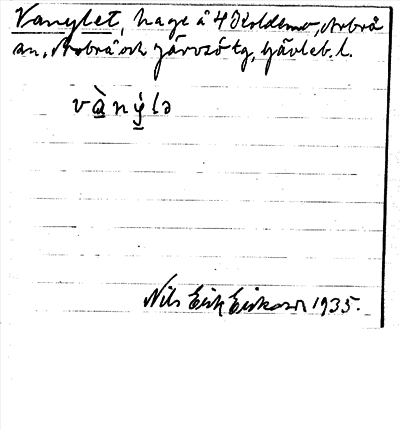 Vanylet, hage å 4 Koldemo, Arbrå
sn, Arbrå och Järvsö tg, Gävleb. l.
và̱ný̱lə
Nils Erik Eriksson 1935.